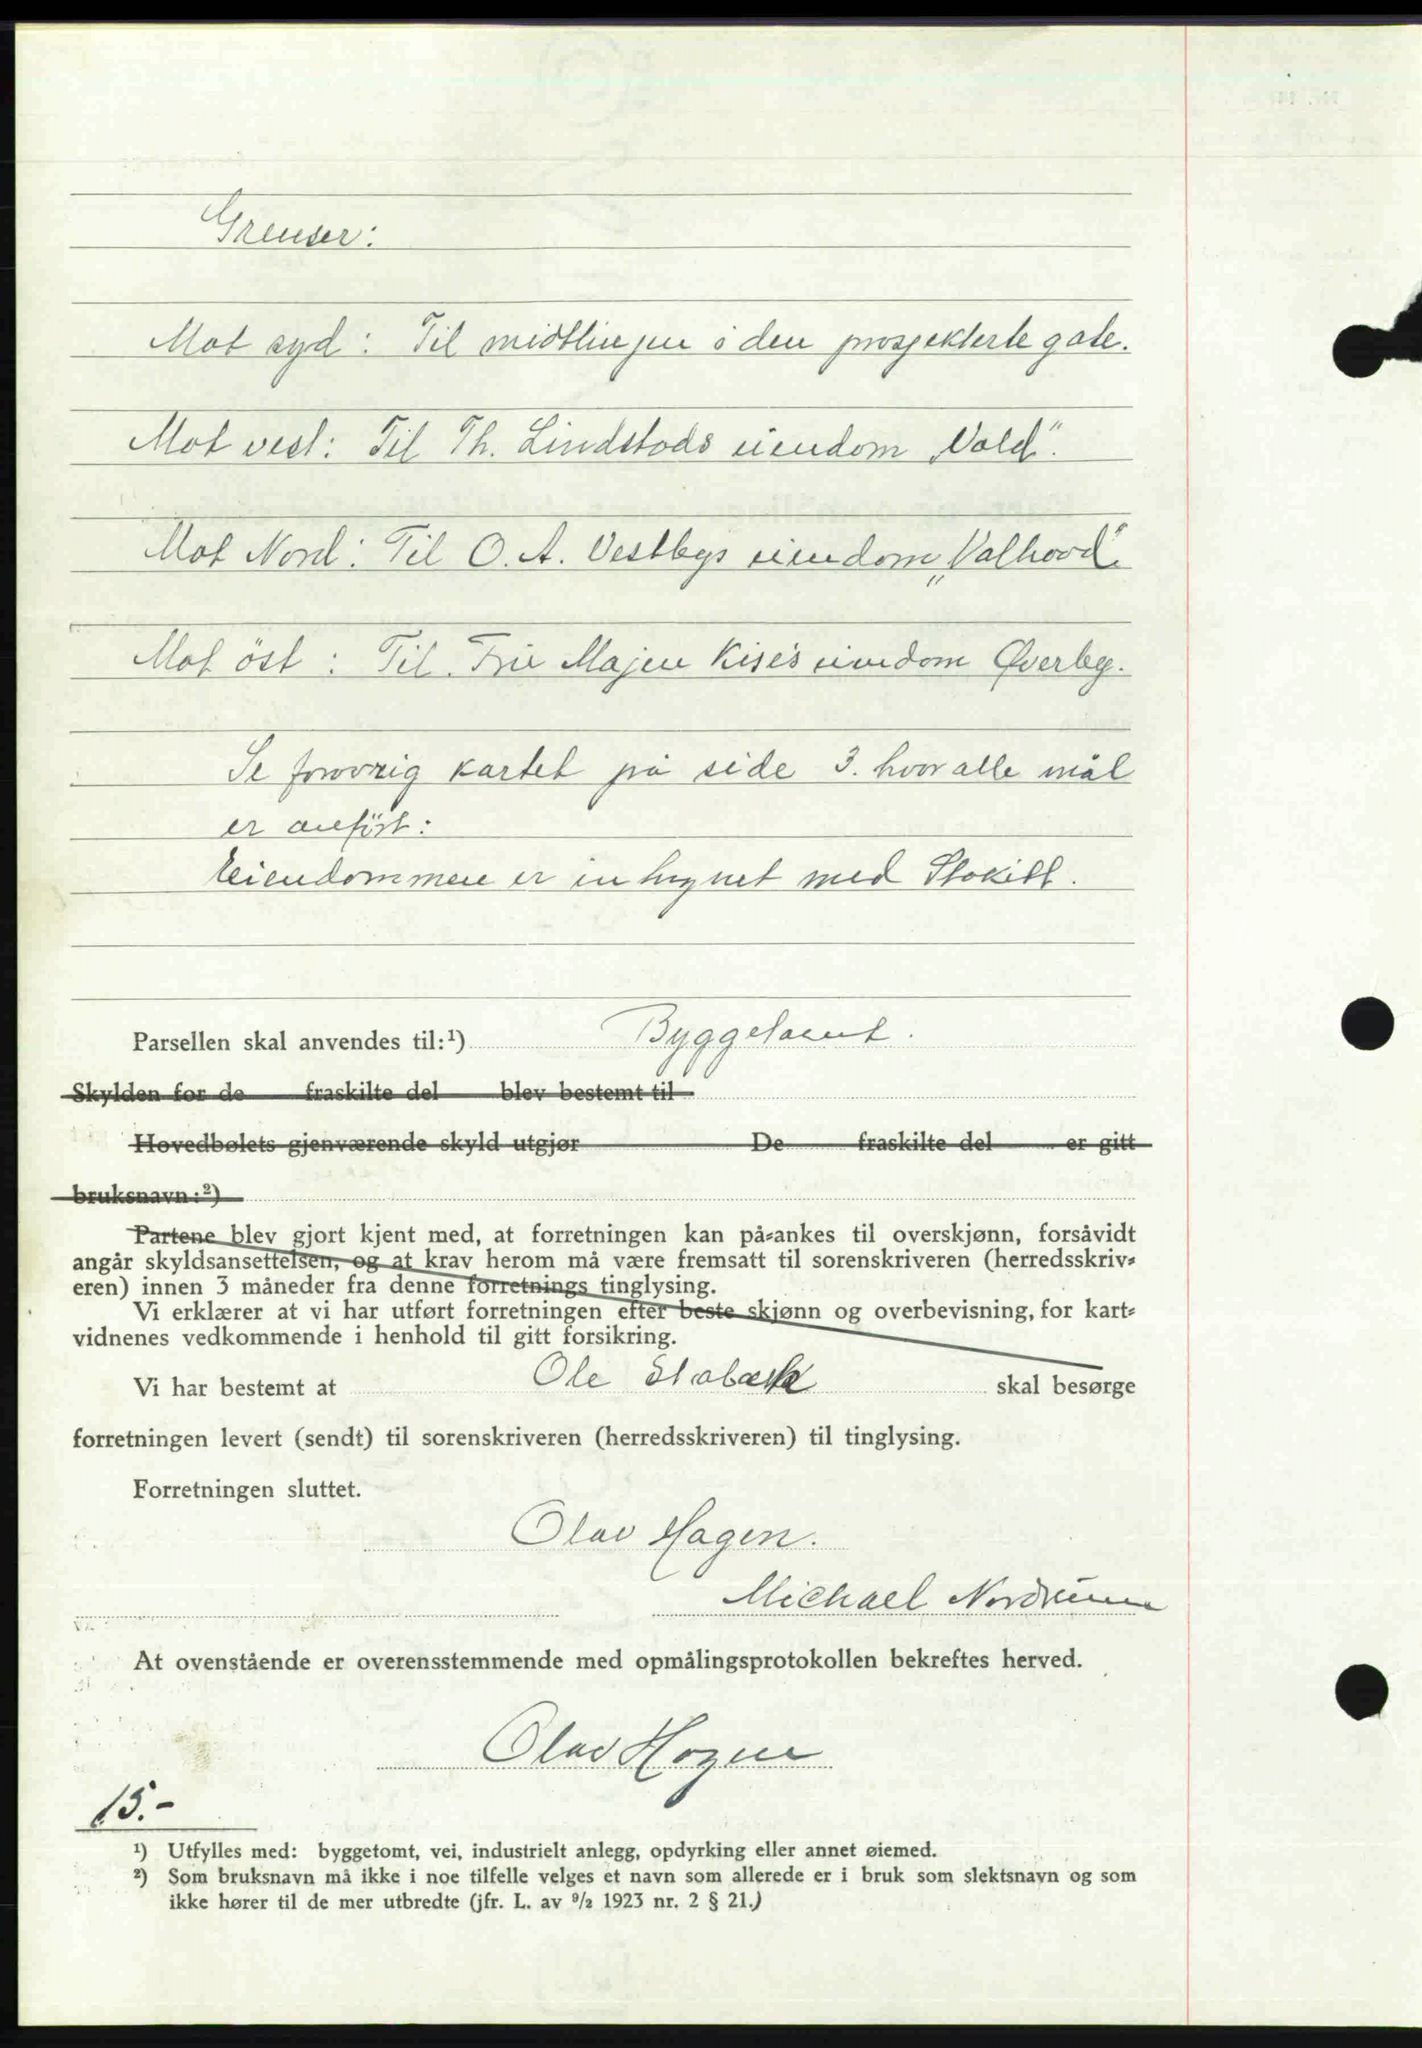 Grenser:
Mot syd: Til midtlinjen i den prosjekterte gate.
Mot vest: Til Th. Lindstads eiendom „Vold".
Mot Nord: Til O. A. Vestbys eiendom „Valhovd".
Mot öst: Til Majen Kise's eiendom Øverby.
Se forøvrig kartet på side 3. hvor alle mål
er anfört:
Eiendommen er inhegnet med Stakitt.
Parsellen skal anvendes til:¹) Byggetomt.
Skylden for de fraskilte del blev bestemt til
Hovedbølets gjenværende skyld utgjør De fraskilte del er gitt
bruksnavn:²)
Partene blev gjort kjent med, at forretningen kan på-ankes til overskjønn, forsåvidt
angår skyldsansettelsen, og at krav herom må være fremsatt til sorenskriveren (herredsskriv-
eren) innen 3 måneder fra denne forretnings tinglysing.
Vi erklærer at vi har utført forretningen efter beste skjønn og overbevisning, for kart-
vidnenes vedkommende i henhold til gitt forsikring.
Vi har bestemt at Ole Stabæk skal besørge
forretningen levert (sendt) til sorenskriveren (herredsskriveren) til tinglysing.
Forretningen sluttet.
Olav Hagen.
Michael Nordrum
At ovenstående er overensstemmende med opmålingsprotokollen bekreftes herved.
Olav Hagen
15.-
¹) Utfylles med: byggetomt, vei, industrielt anlegg, opdyrking eller annet øiemed.
²) Som bruksnavn må ikke i noe tilfelle velges et navn som allerede er i bruk som slektsnavn og som
ikke hører til de mer utbredte (jfr. L. av 9/2 1923 nr. 2 § 21.)